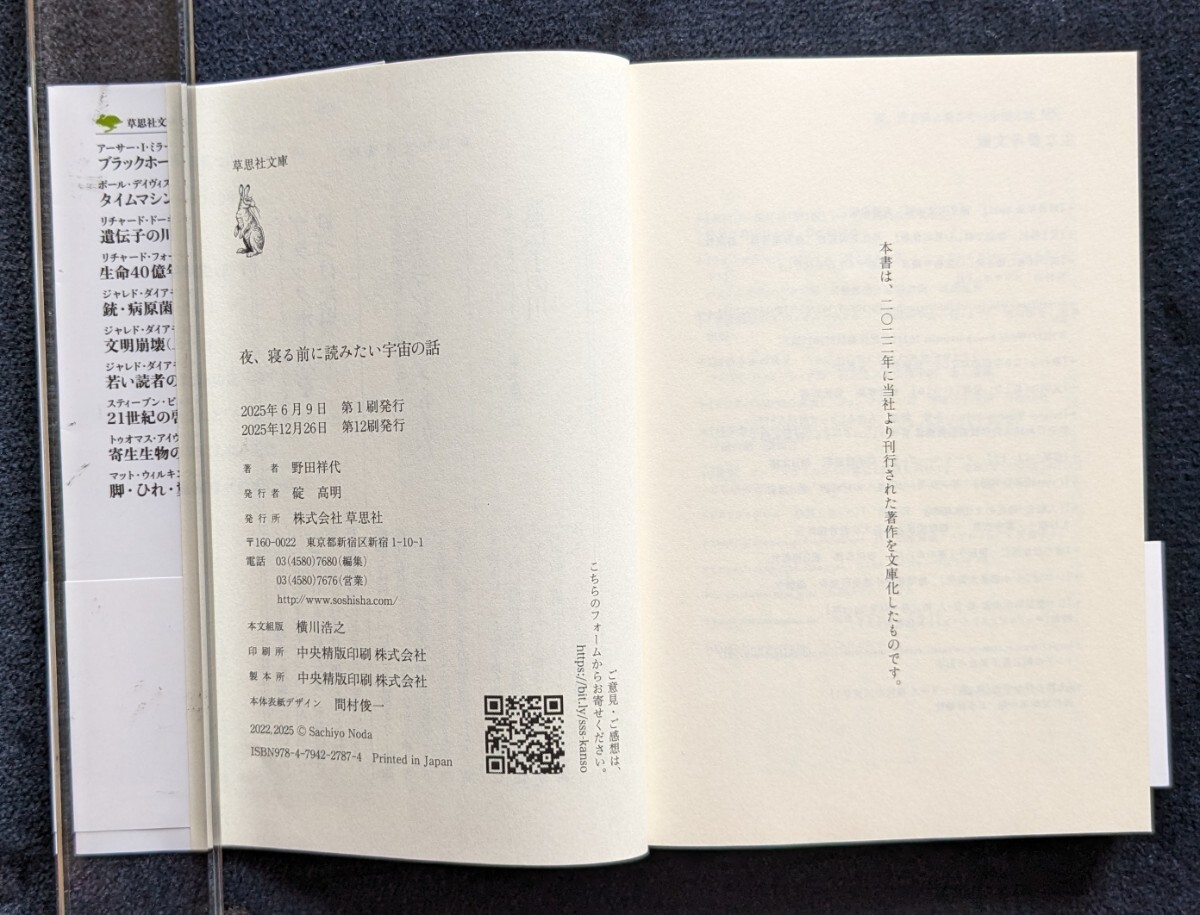 草思社文
アーサー・I・ミラー
ブラックホー
ポール・デイヴィス
タイムマシン
リチャード・ドー
遺伝子の川
リチャード・フォー
生命40億年
ジャレド・ダイア
銃・病原菌
ジャレド・ダイア
文明崩壊(
ジャレド・ダイア
若い読者の
スティーブン・ピ
21世紀の啓
トゥオマス・アイヴ
寄生生物の
マット・ウィルキン
脚・ひれ・
草思社文庫
夜、寝る前に読みたい宇宙の話
2025年6月9日 第1刷発行
2025年12月26日 第12刷発行
著者 野田祥代
発行者 碇 高明
発行所 株式会社 草思社
〒160-0022 東京都新宿区新宿1-10-1
電話 03(4580)7680(編集)
03(4580)7676(営業)
http://www.soshisha.com/
本文組版 横川浩之
印刷所 中央精版印刷 株式会社
製本所 中央精版印刷 株式会社
本体表紙デザイン 間村俊一
2022,2025 © Sachiyo Noda
ISBN978-4-7942-2787-4 Printed in Japan
ご意見・ご感想は、
こちらのフォームからお寄せください。
https://bit.ly/sss-kanso
本書は、二〇二二年に当社より刊行された著作を文庫化したものです。